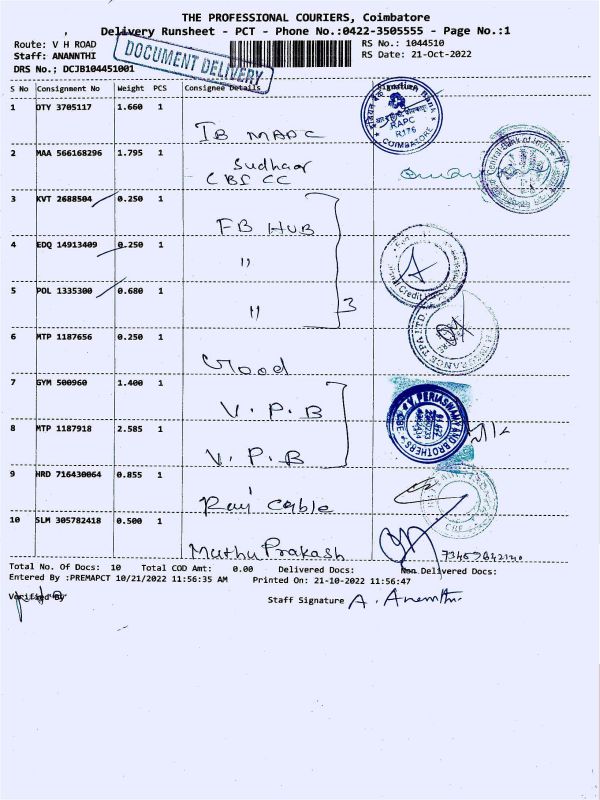 THE PROFESSIONAL COURIERS, Coimbatore
Delivery Runsheet - PCT - Phone No.:0422-3505555 - Page No.:1
Route: V H ROAD
RS No.: 1044510
Staff: ANANNTHI
RS Date: 21-Oct-2022
DRS No.; DCJB104451001
DOCUMENT DELIVERY
S No Consignment No Weight PCS Consignee Details Signature
1 OTY 3705117 1.660 1
IB MAPC
RAPC
COIMBATORE
2 MAA 566168296 1.795 1
Sudhaar
CBI CC
Central Bank of India
3 KVT 2688504 0.250 1
FB HUB
4 EDQ 14913409 0.250 1
"
5 POL 1335300 0.680 1
"
3
6 MTP 1187656 0.250 1
7 GYM 500960 1.400 1
V. P. B
V. PERIASWAMY AND BROTHERS
8 MTP 1187918 2.585 1
V. P. B
9 NRD 716430064 0.855 1
Ravi cable
10 SLM 305782418 0.500 1
Muthu Prakash
Total No. Of Docs: 10 Total COD Amt: 0.00 Delivered Docs: Non Delivered Docs:
Entered By :PREMAPCT 10/21/2022 11:56:35 AM Printed On: 21-10-2022 11:56:47
Verified By
Staff Signature A. Anannthi